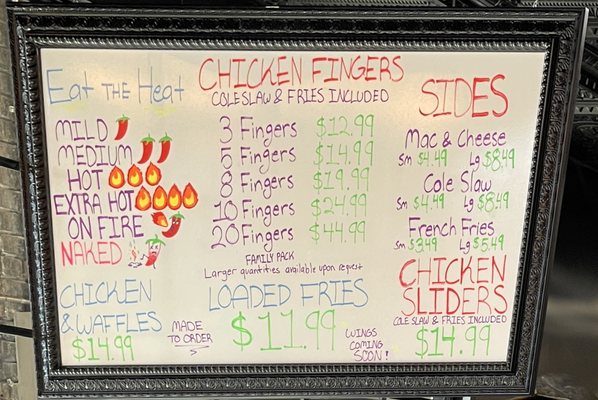 Eat the Heat
MILD
MEDIUM
HOT
EXTRA HOT
ON FIRE
NAKED
CHICKEN
& WAFFLES
$14.99
CHICKEN FINGERS
COLE SLAW & FRIES INCLUDED
3 Fingers $12.99
5 Fingers $14.99
8 Fingers $19.99
10 Fingers $24.99
20 Fingers $44.99
FAMILY PACK
Larger quantities available upon request
LOADED FRIES
MADE
TO ORDER
$11.99
WINGS
COMING
SOON!
SIDES
Mac & Cheese
Sm $4.49 Lg $8.49
Cole Slaw
Sm $4.49 Lg $8.49
French Fries
Sm $3.49 Lg $5.49
CHICKEN
SLIDERS
COLE SLAW & FRIES INCLUDED
$14.99